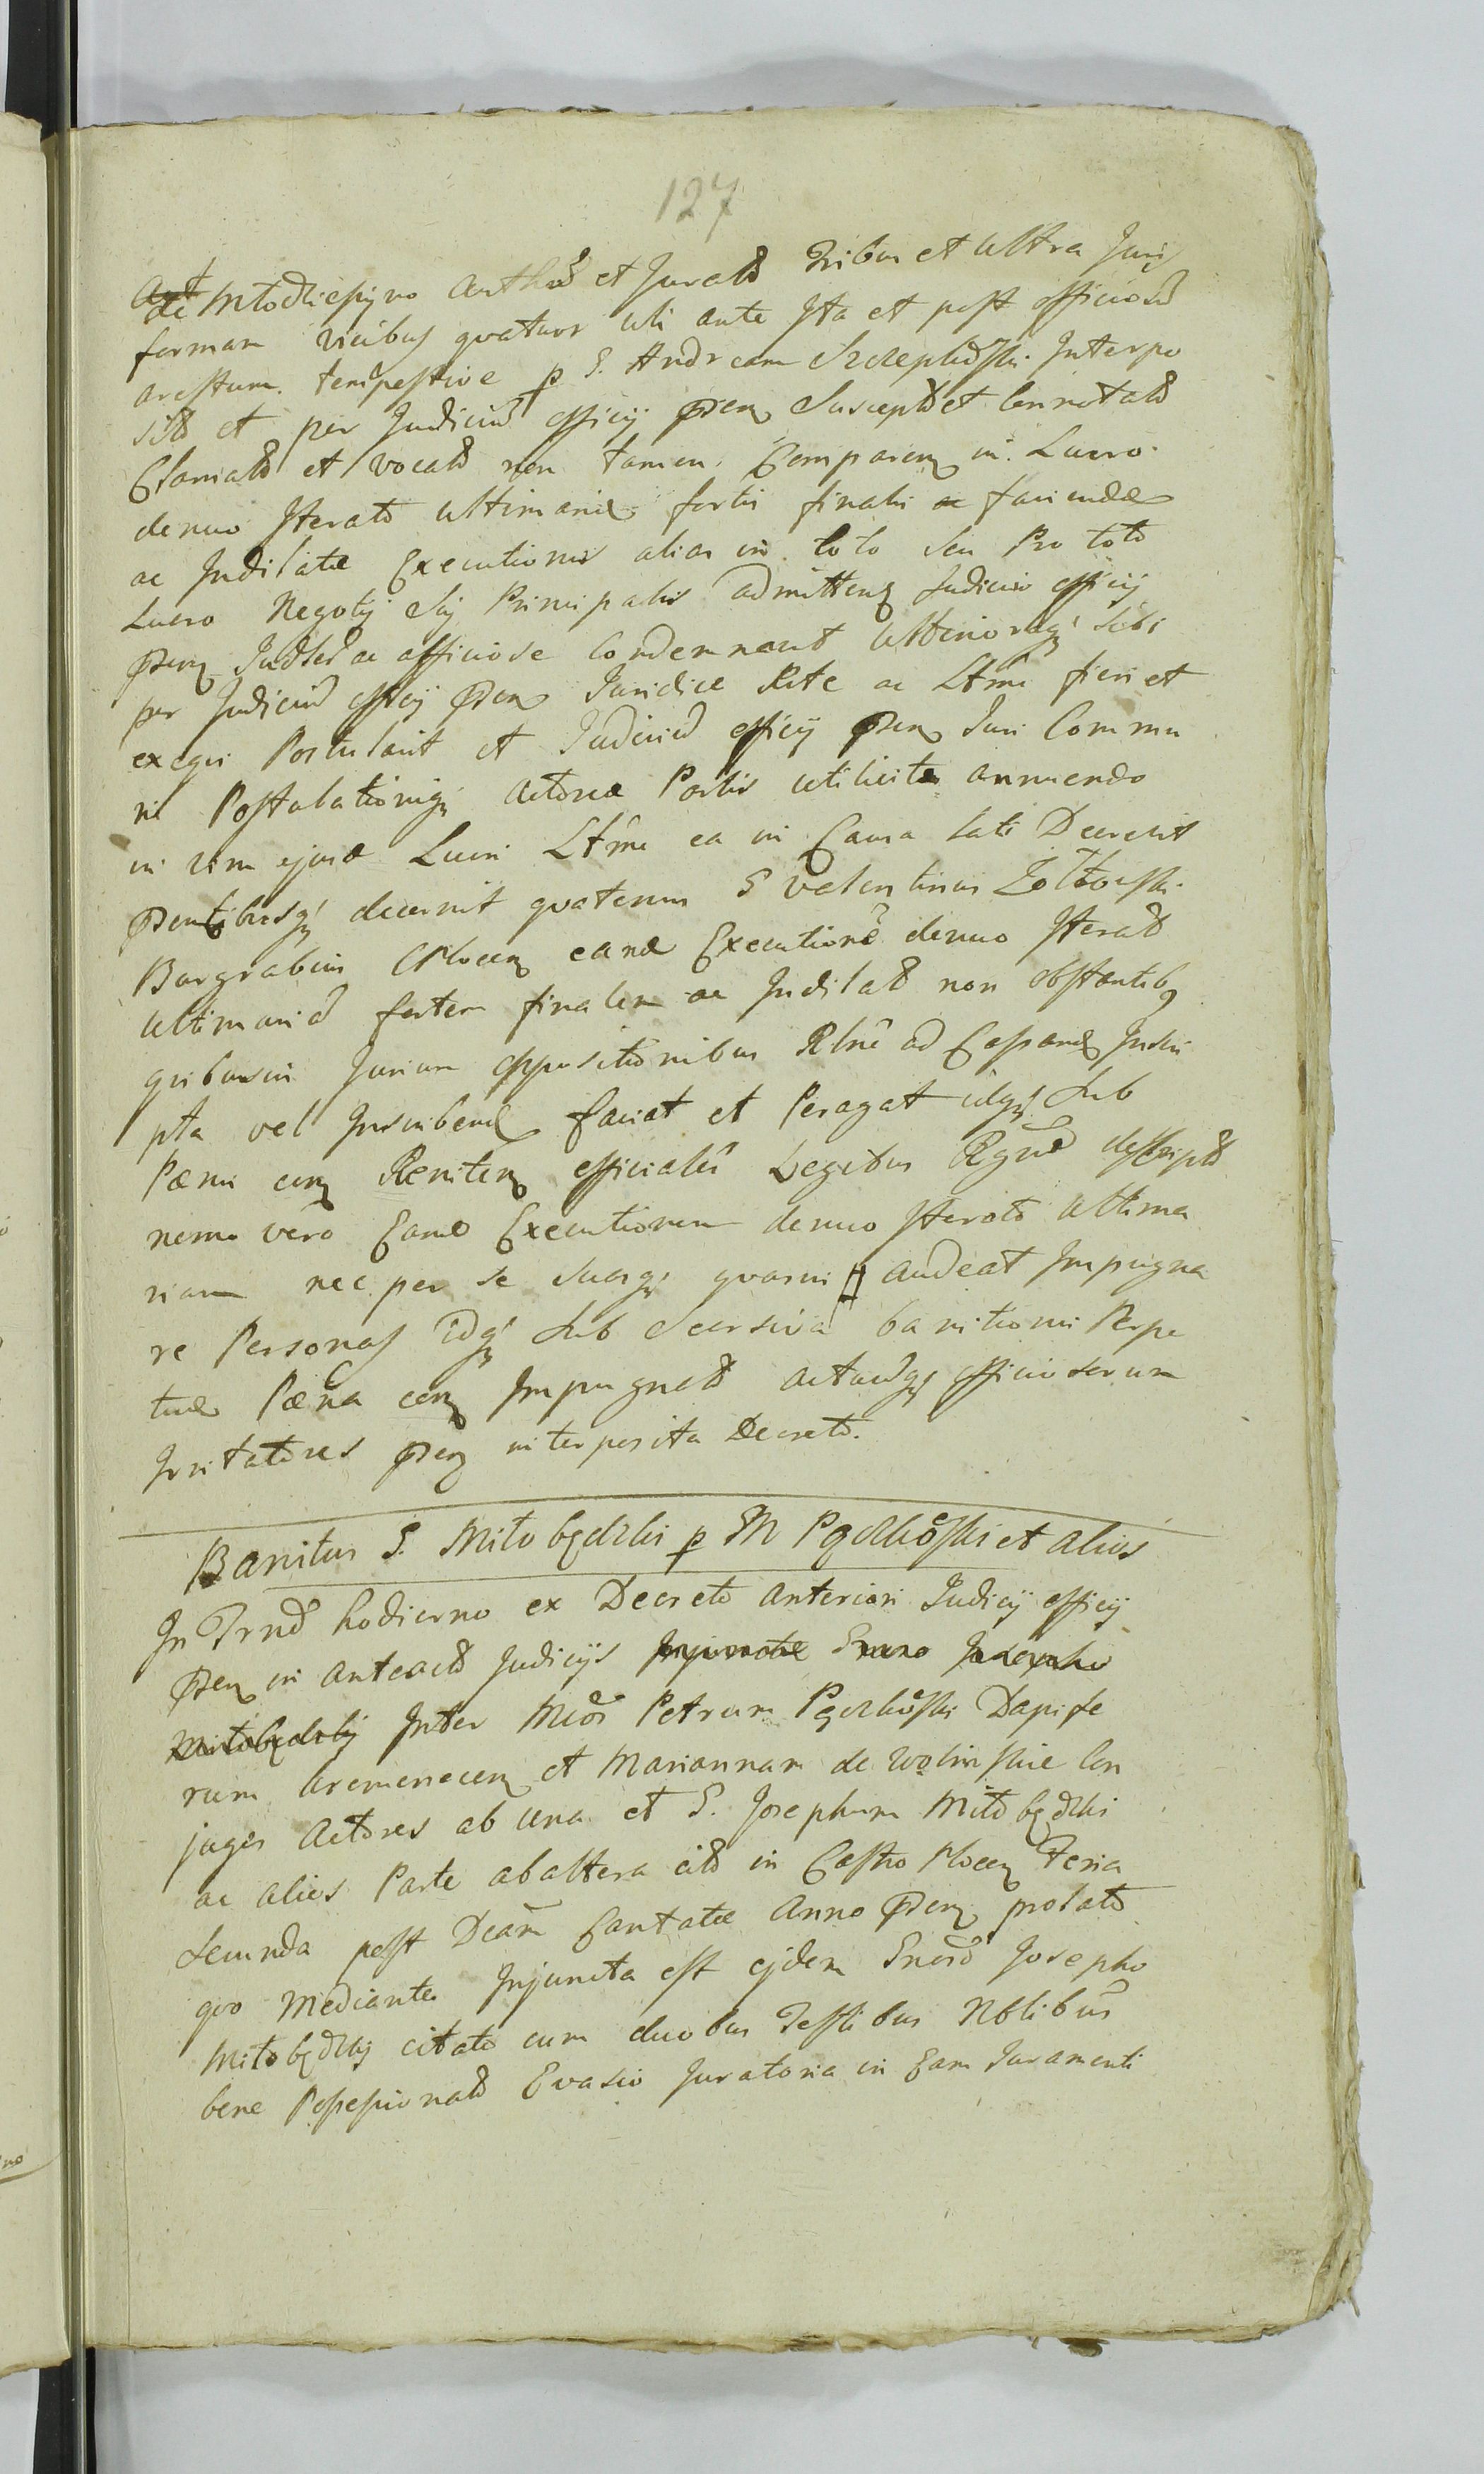 127
de Młodziejyno Auth et Jurato Tribus et ultra Juris
formam vicibus quatuor uti ante Ita et post officiosũ
arestum tempestive p G. Andream Interpo
sito et per Judiciũ officij pñ Susceptũ et Connotato
Clamato et vocato non tamen Comparen in Lucro
denuo Iterato ultimariæ fortis finalis ac faciendæ
ac Indilatæ Executionis alias in toto seu Pro toto
Lucro Negotij Sui Principalis admitten Judicio officij
pñ Judlr ac officiose Condemnavit ulteriorq sibi
per Judiciũ officij pñ Juridice Rite ac Lttme fieri et
exequi Postulavit et Judiciũ officij pñ Juri Commu
ni Postulationiq Actoreæ Partis utilicitæ annuendo
in vim ejusd Lucri Lttme ea in Causa lati Decrevit
pñtibusq decernit quatenus G Valentinus Żółtowski
Burgrabius Plocen eand Executionẽ denuo Iterato
ultimariã fortem finalem ac Indilatã non obstantibq
quibusvis Jurium oppositionibus Rlnẽ ad Capand Inscri
pta vel Inscribend faciat et Peragat idq Sub
Pænis con Reniten officiales Legibus Regni descriptis
nemo vero Eand Executionem denuo Iterato ultima
riam nec per se Suasq quasvis audeat Impugna
re Personas idq Sub Scarsivã banitionis Perpe
tuæ Pæna con Impugnato actusq officiosorum
Irritatores pñ interposita Decreto.
Banitus G. Miłobędzki p M Pądzkoski et alios
In Trno hodierno ex Decreto anteriori Judicij officij
pñ in anteacto Judicijs
Inter Mcos Petrum Pądzkoski Dapife
rum Cremenecen et Mariannam de Wolinskie Con
juges Actores ab una et G. Josephum Miłobędzki
ac alios Parte ab altera cito in Castro Plocen Feria
Secunda post Dcam Cantate Anno pñ prolato
quo Mediante Injuncta est ejdem Gnero Josepho
Miłobędzkij citato cum duobus Testibus Nblibus
bene Possessionato Evasio Juratoria in Eam Juramenti